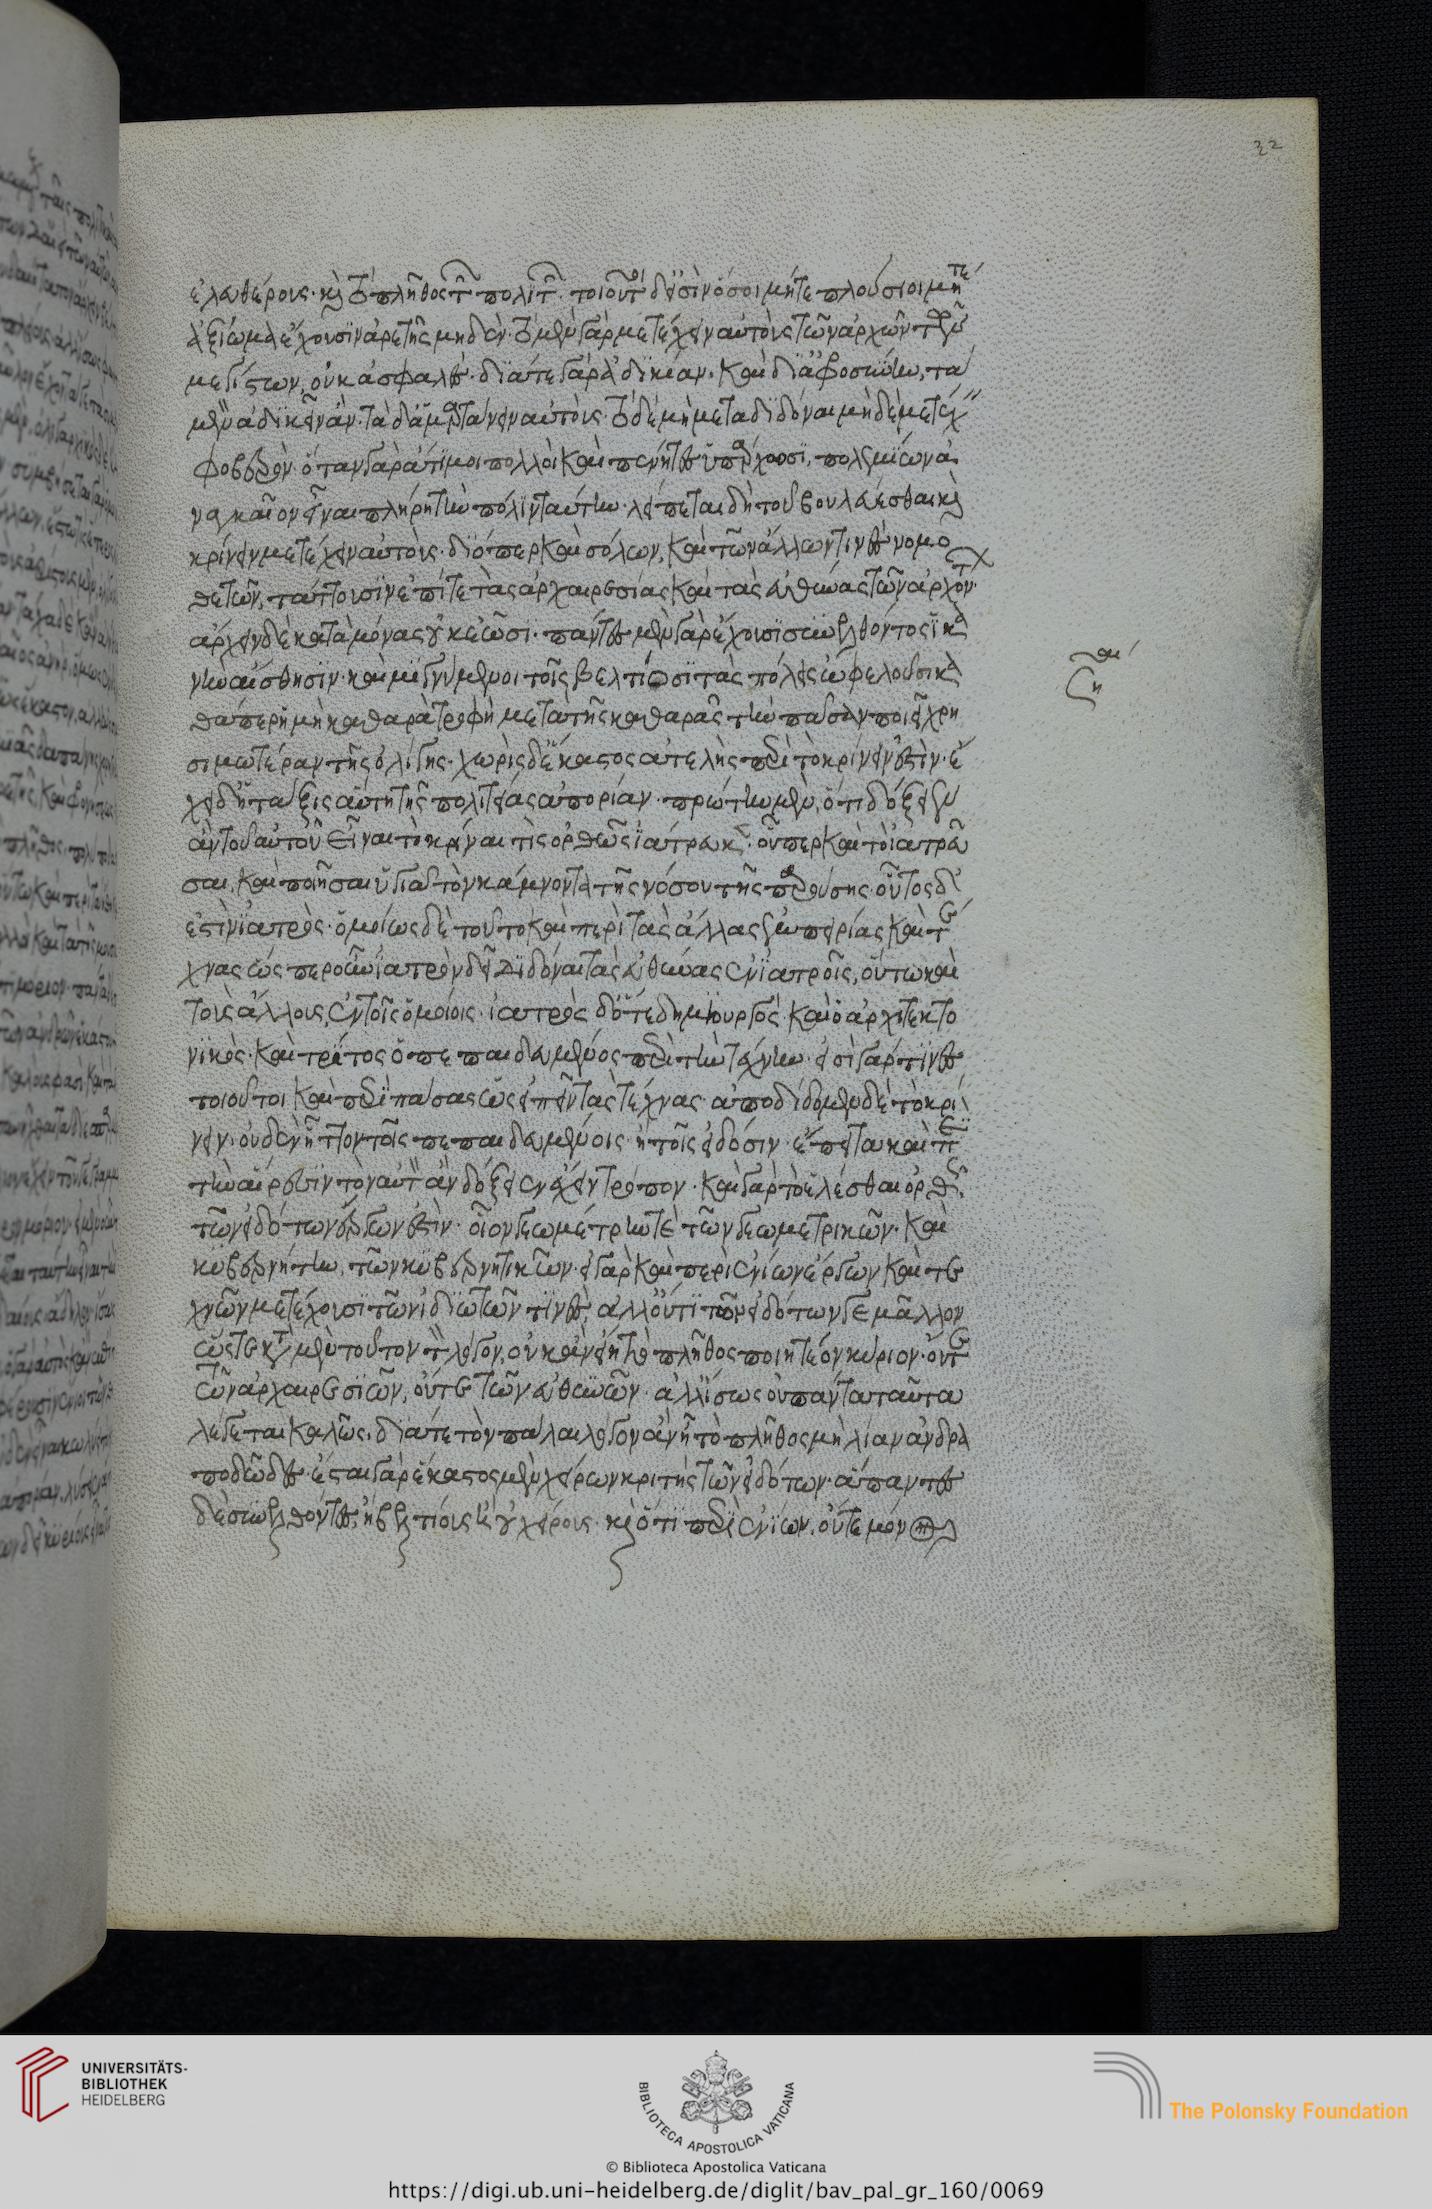 32
ἐλευθέρους· καὶ τὸ πλῆθος τῶν πολιτῶν. τοιοῦτοι δ' εἰσὶν ὅσοι μήτε πλούσιοι μήτε
ἀξίωμα ἔχουσιν ἀρετῆς μηδέν· τὸ μὲν γὰρ μετέχειν αὐτοὺς τῶν ἀρχῶν τῶν
μεγίστων, οὐκ ἀσφαλές· διά τε γὰρ ἀδικίαν. καὶ δι' ἀφροσύνην, τὰ
μὲν ἀδικεῖν ἄν· τὰ δ' ἁμαρτάνειν αὐτούς· τὸ δὲ μὴ μεταδιδόναι μηδὲ μετέχειν
φοβερόν· ὅταν γὰρ ἄτιμοι πολλοὶ καὶ πένητες ὑπάρχωσι, πολεμίων ἀ
ναγκαῖον εἶναι πλήρη τὴν πόλιν ταύτην· λείπεται δὴ τοῦ βουλεύεσθαι καὶ
κρίνειν μετέχειν αὐτούς· διόπερ καὶ σόλων, καὶ τῶν ἄλλων τινὲς νομο
θετῶν, τάττουσιν ἐπί τε τὰς ἀρχαιρεσίας καὶ τὰς εὐθύνας τῶν ἀρχόντων·
ἄρχειν δὲ κατὰ μόνας οὐκ ἐῶσι· πάντες μὲν γὰρ ἔχουσι συνελθόντες ἱκα
νὴν αἴσθησιν· καὶ μιγνύμενοι τοῖς βελτίοσι τὰς πόλεις ὠφελοῦσι κα
θάπερ ἡ μὴ καθαρὰ τροφὴ μετὰ τῆς καθαρᾶς τὴν πᾶσαν ποιεῖ χρη
σιμωτέραν τῆς ὀλίγης· χωρὶς δ' ἕκαστος ἀτελὴς περὶ τὸ κρίνειν ἐστίν· ἔ
χει δ' ἡ τάξις αὕτη τῆς πολιτείας ἀπορίαν· πρώτην μὲν, ὅτι δόξειεν
ἂν τοῦ αὐτοῦ εἶναι τὸ κρῖναι τίς ὀρθῶς ἰάτρευκεν· οὗπερ καὶ τὸ ἰατρεῦ
σαι, καὶ ποιῆσαι ὑγιᾶ τὸν κάμνοντα τῆς νόσου τῆς παρούσης· οὗτος δ'
ἐστὶν ἰατρός· ὁμοίως δὲ τοῦτο καὶ περὶ τὰς ἄλλας ἐμπειρίας καὶ τέ
χνας ὥσπερ οὖν ἰατρὸν δεῖ διδόναι τὰς εὐθύνας ἐν ἰατροῖς, οὕτω καὶ
τοὺς ἄλλους, ἐν τοῖς ὁμοίοις· ἰατρὸς δ' ὅ τε δημιουργὸς καὶ ὁ ἀρχιτεκτο
νικός· καὶ τρίτος ὁ πεπαιδευμένος περὶ τὴν τέχνην· εἰσὶ γάρ τινες
τοιοῦτοι καὶ περὶ πάσας ὡς εἰπεῖν τὰς τέχνας· ἀποδίδομεν δὲ τὸ κρί
νειν· οὐδὲν ἧττον τοῖς πεπαιδευμένοις· ἢ τοῖς εἰδόσιν· ἔπειτα καὶ περὶ
τὴν αἵρεσιν τὸν αὐτὸν ἂν δόξειεν ἔχειν τρόπον· καὶ γὰρ τὸ ἑλέσθαι ὀρθῶς,
τῶν εἰδότων ἔργον ἐστίν· οἷον γεωμέτρην τε τῶν γεωμετρικῶν. καὶ
κυβερνήτην, τῶν κυβερνητικῶν· εἰ γὰρ καὶ περὶ ἐνίων ἔργων καὶ τε
χνῶν μετέχουσι τῶν ἰδιωτῶν τινές, ἀλλ' οὔ τι τῶν εἰδότων γε μᾶλλον
ὥστε κατὰ μὲν τοῦτον τὸν λόγον, οὐκ ἂν εἴη τὸ πλῆθος ποιητέον κύριον· οὔτε
τῶν ἀρχαιρεσιῶν, οὔτε τῶν εὐθυνῶν· ἀλλ' ἴσως οὐ πάντα ταῦτα
λέγεται καλῶς. διά τε τὸν πάλαι λόγον ἂν ᾖ τὸ πλῆθος μὴ λίαν ἀνδρα
ποδῶδες· ἔσται γὰρ ἕκαστος μὲν χείρων κριτὴς τῶν εἰδότων· ἅπαντες
δὲ συνελθόντες, ἢ βελτίους ἢ οὐ χείρους· καὶ ὅτι περὶ ἐνίων, οὔτε μόνον
UNIVERSITÄTS-
BIBLIOTHEK
HEIDELBERG
BIBLIOTECA APOSTOLICA VATICANA
The Polonsky Foundation
© Biblioteca Apostolica Vaticana
https://digi.ub.uni-heidelberg.de/diglit/bav_pal_gr_160/0069